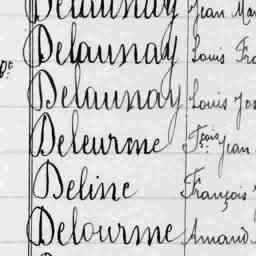 Delaunay Jean Ma
Delaunay Louis Fra
Delaunay Louis Jos
Deleurme Fçois Jean
Deline François
Delourme Amand